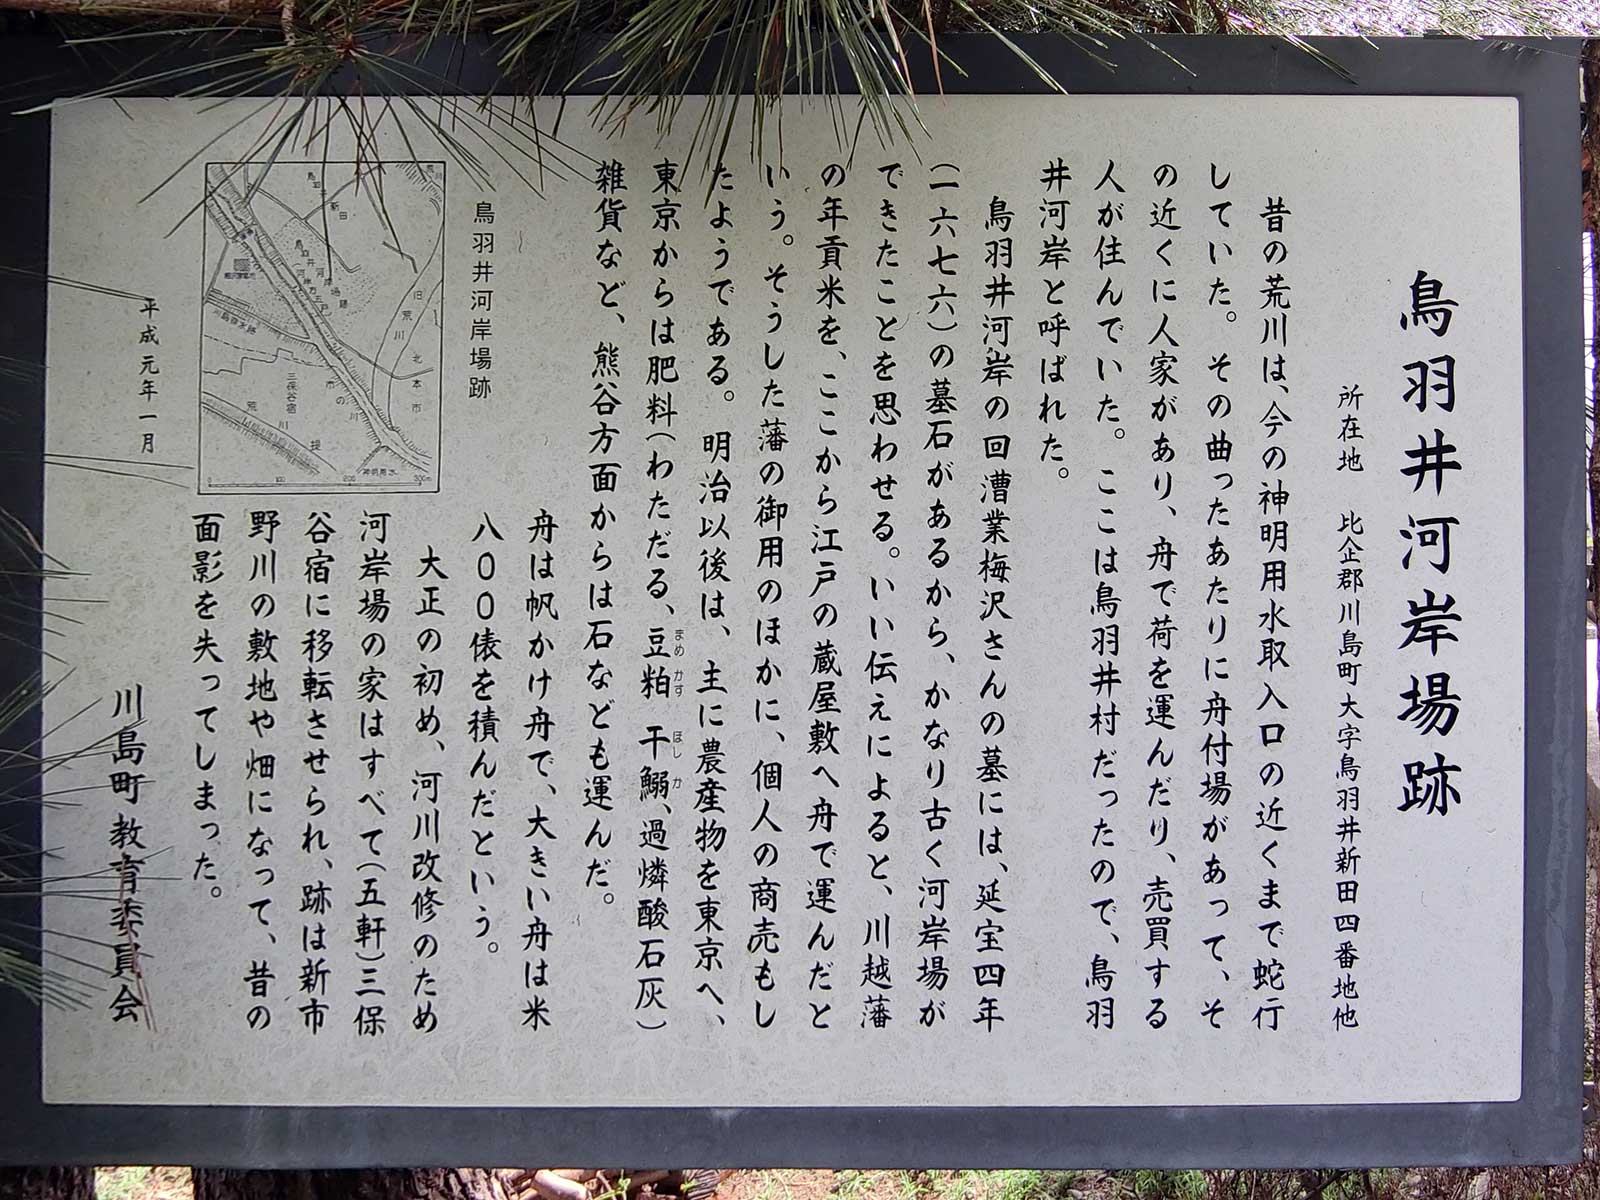 鳥羽井河岸場跡
所在地 比企郡川島町大字鳥羽井新田四番地他
昔の荒川は、今の神明用水取入口の近くまで蛇行
していた。その曲ったあたりに舟付場があって、そ
の近くに人家があり、舟で荷を運んだり、売買する
人が住んでいた。ここは鳥羽井村だったので、鳥羽
井河岸と呼ばれた。
鳥羽井河岸の回漕業梅沢さんの墓には、延宝四年
(一六七六)の墓石があるから、かなり古く河岸場が
できたことを思わせる。いい伝えによると、川越藩
の年貢米を、ここから江戸の蔵屋敷へ舟で運んだと
いう。そうした藩の御用のほかに、個人の商売もし
たようである。明治以後は、主に農産物を東京へ、
東京からは肥料(わただる、豆粕 干鰯、過燐酸石灰)
まめ かす ほし か
雑貨など、熊谷方面からは石なども運んだ。
舟は帆かけ舟で、大きい舟は米
八〇〇俵を積んだという。
大正の初め、河川改修のため
河岸場の家はすべて(五軒)三保
谷宿に移転させられ、跡は新市
野川の敷地や畑になって、昔の
面影を失ってしまった。
鳥羽井河岸場跡
鳥羽井新田
鳥羽井河岸場跡
旧荒川
北本市
市の川
三保谷宿
荒川堤
神明用水
0 100 200 300m
平成元年一月
川島町教育委員会